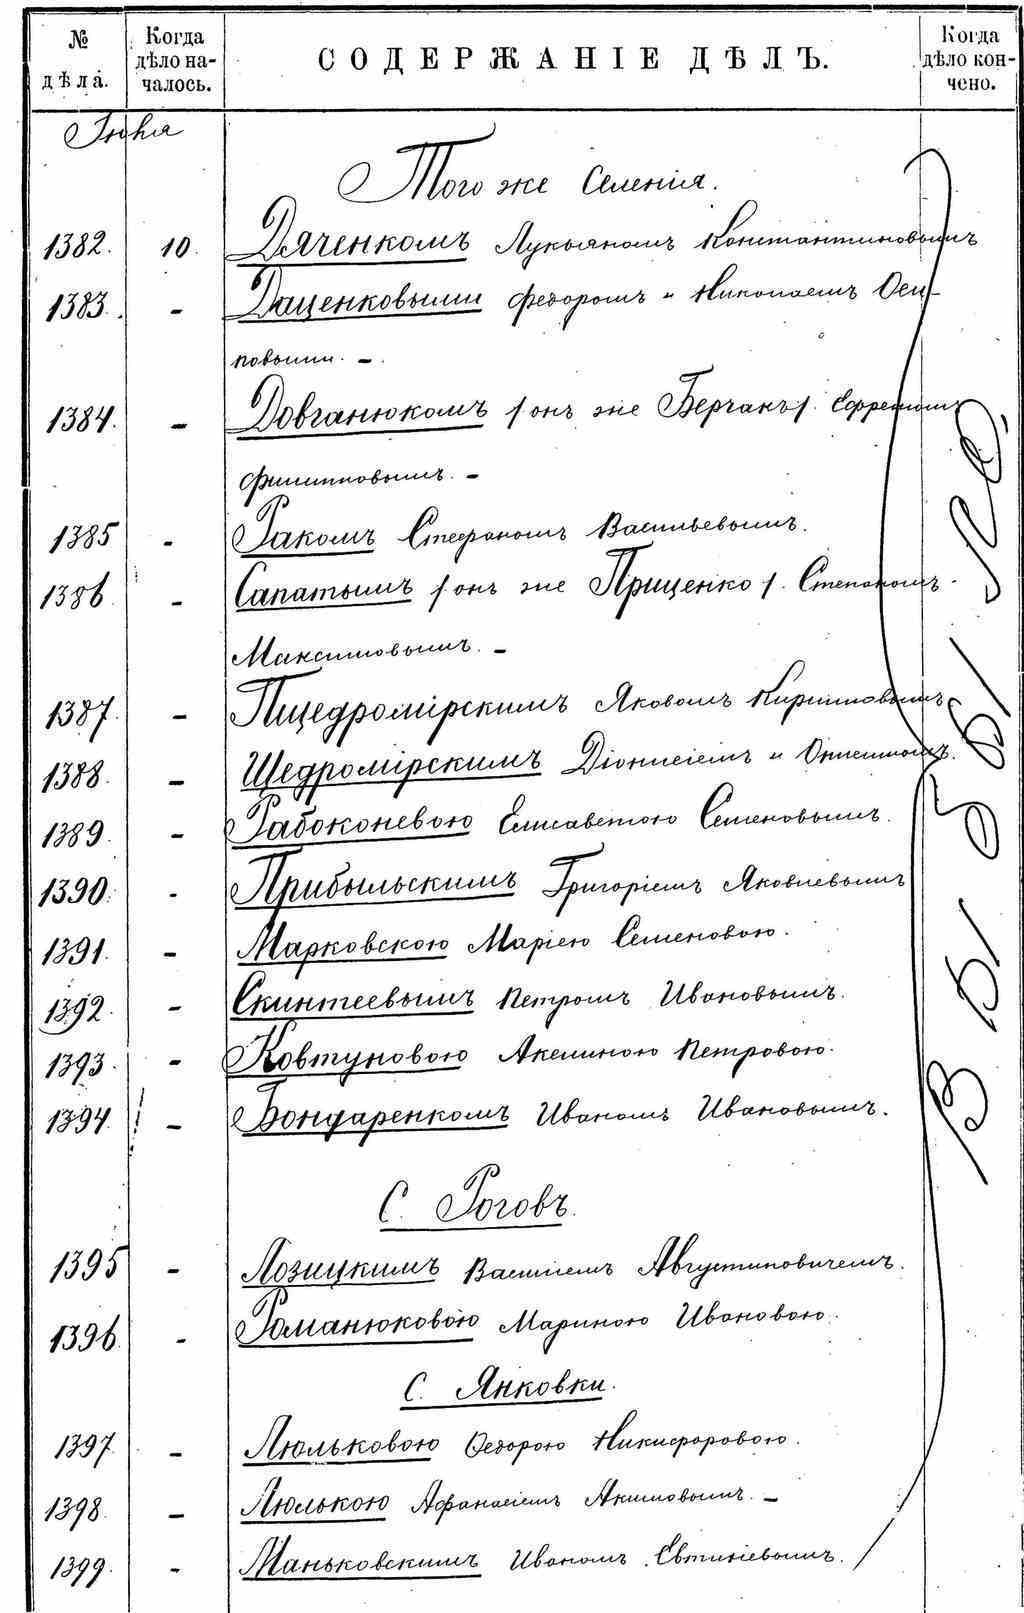 № дѣла.
Когда дѣло на-
чалось.
СОДЕРЖАНІЕ ДѢЛЪ.
Когда дѣло кон-
чено.
Того же Селенія.
1382. 10. Дяченкомъ Лукьяномъ Константиновымъ
1383. - Даценковыми Федоромъ и Николаемъ Оси-
повыми. -
1384. - Довганюкомъ /онъ же Берчакъ/. Ефремомъ
Филипповымъ. -
1385 - Ракомъ Стефаномъ Васильевымъ.
1386 - Сапатымъ /онъ же Приценко/. Степаномъ
Максимовымъ. -
1387. - Пщедромірскимъ Яковомъ Кириловымъ
1388. - Щедромірскимъ Діонисіемъ и
1389. - Рабоконевою Елисаветою Семеновымъ.
1390. - Прибыльскимъ Григоріемъ Яковлевымъ
1391. - Марковскою Маріею Семеновою.
1392. - Скинтеевымъ Петромъ Ивановымъ.
1393. - Ковтуновою Акелиною Петровою.
1394. - Бондаренкомъ Иваномъ Ивановымъ.
С. Роговъ.
1395 - Лозицкимъ Василіемъ Августиновичемъ.
1396 - Романюковою Мариною Ивановою.
С. Янковки.
1397. - Люльковою Ѳедорою Никифоровою.
1398. - Люлькою Афанасіемъ Акимовымъ. -
1399. - Маньковскимъ Иваномъ Евтихіевымъ.